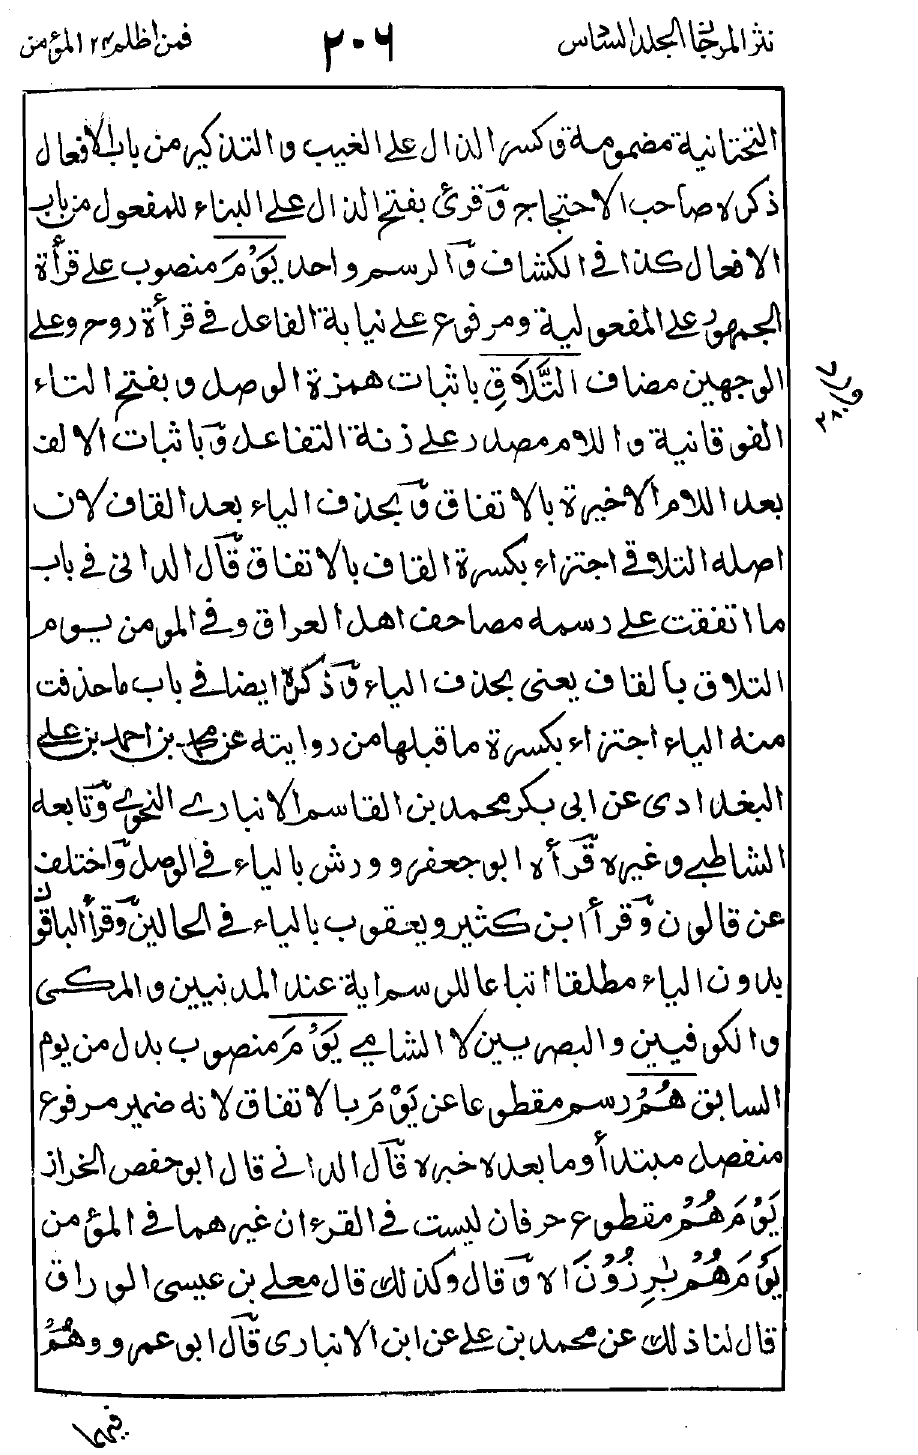 نثر المرجان المجلد السادس
٢٠٦
فمن اظلم ٢٤ المؤمن
التحتانية مضمومة وكسر الذال على الغيب والتذكير من باب الافعال
ذكره صاحب الاحتجاج وقرئ بفتح الذال على البناء للمفعول من باب
الافعال كذا في الكشاف والرسم واحد يَوْمَ منصوب على قرأة
الجمهور على المفعولية ومرفوع على نيابة الفاعل في قرأة روح وعلى
الوجهين مضاف التَّلَاقِ باثبات همزة الوصل وبفتح التاء
الفوقانية واللام مصدر على زنة التفاعل وباثبات الالف
بعد اللام الاخيرة بالاتفاق وبحذف الياء بعد القاف لان
اصله التلاقي اجتزاء بكسرة القاف بالاتفاق قال الداني في باب
ما اتفقت على رسمه مصاحف اهل العراق وفي المومن يوم
التلاق بالقاف يعنى بحذف الياء وذكرة ايضا في باب ما حذفت
منه الياء اجتزاء بكسرة ما قبلها من روايته عن محمد بن احمد بن علي
البغدادى عن ابى بكر محمد بن القاسم الانبارے النحوے وتابعه
الشاطبے وغيره قرأه ابو جعفر وورش بالياء في الوصل واختلف
عن قالون وقرأ ابن كثير ويعقوب بالياء في الحالين وقرأ الباقون
بدون الياء مطلقا اتباعا للرسم اية عند المدنيين والمركى
والكوفيين والبصريين لا الشامے يَوْمَ منصوب بدل من يوم
السابق هُمْ رسم مقطوعا عن يَوْمَ بالاتفاق لانه ضمير مرفوع
منفصل مبتدأ وما بعده خبره قال الدانے قال ابو حفص الخراز
يَوْمَ هُمْ مقطوع حرفان ليست في القرءان غيرهما في المؤمن
يَوْمَ هُمْ بٰرِزُوْنَ الا وقال وكذلك قال معلے بن عيسى الوراق
قال لنا ذلك عن محمد بن علي عن ابن الانبارى قال ابو عمرو وهُمْ
فيهما